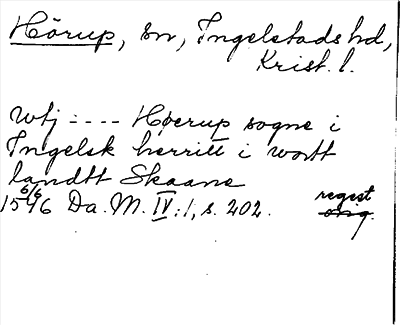 Hörup, sn, Ingelstads hd,
Krist. l.
Utj ---- Høerup sogne i
Ingelsk herritt i wortt
landtt Skaane
6/6
1546 Da. M. IV:1, s. 202. regist
orig.